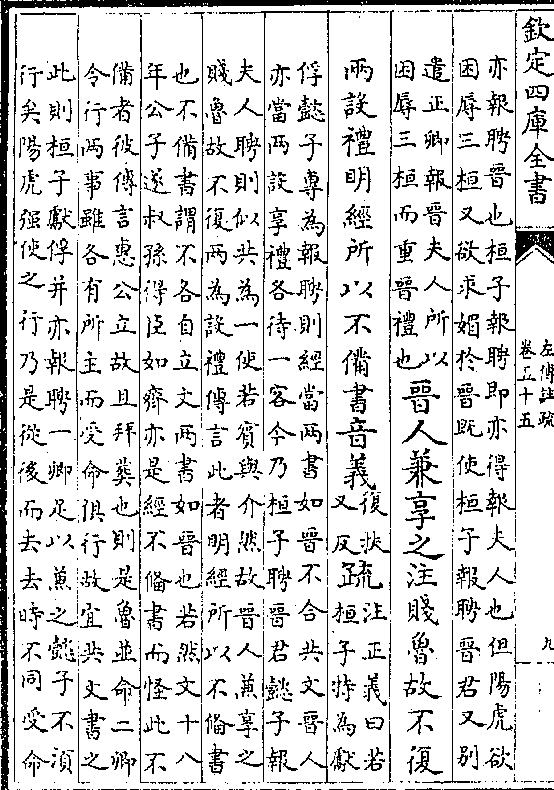 欽定四庫全書
左傳註疏
卷五十五
九
亦報聘晉也桓子報聘即亦得報夫人也但陽虎欲
困辱三桓又欲求媚於晉既使桓子報聘晉君又别
遣正卿報晉夫人所以
困辱三桓而重晉禮也
晉人兼享之注賤魯故不復
兩設禮明經所以不備書音義
復扶
又反
疏
注正義曰若
桓子特為獻
俘懿子專為報聘則經當兩書如晉不合共文晉人
亦當兩設享禮各待一客今乃桓子聘晉君懿子報
夫人聘則似共為一使若賓與介然故晉人兼享之
賤魯故不復兩為設禮傳言此者明經所以不備書
也不備書謂不各自立文兩書如晉也若然文十八
年公子遂叔孫得臣如齊亦是經不備書而怪此不
備者彼傳言惠公立故且拜葬也則是魯並命二卿
令行兩事雖各有所主而受命俱行故宜共文書之
此則桓子獻俘并亦報聘一卿足以兼之懿子不須
行矣陽虎强使之行乃是從後而去去時不同受命